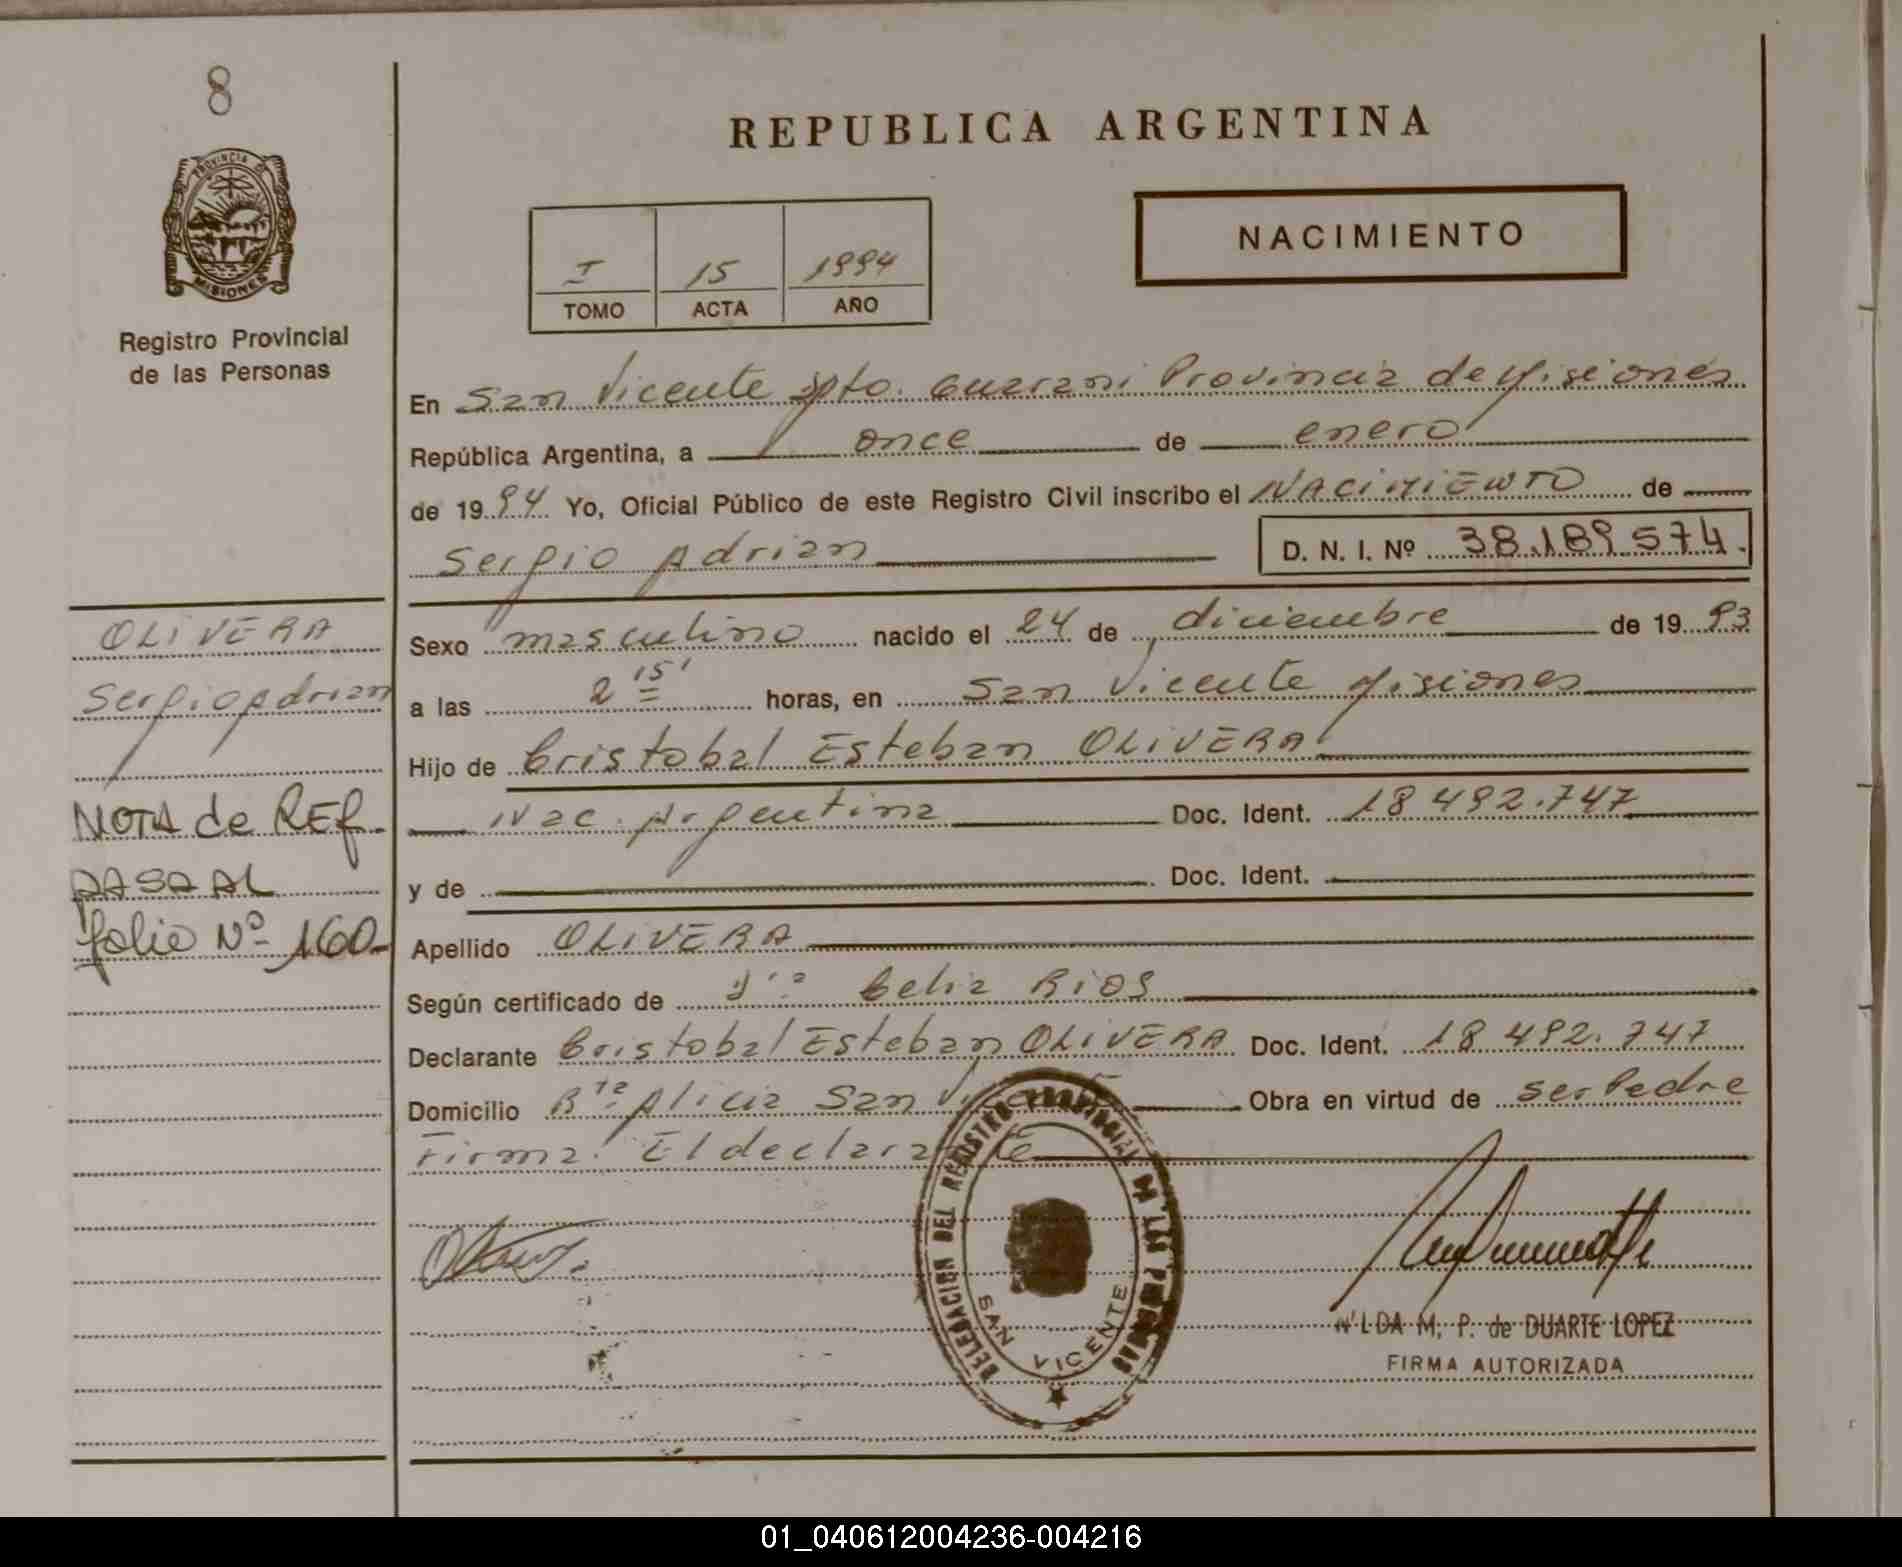 8
PROVINCIA DE
MISIONES
Registro Provincial
de las Personas
OLIVERA
Sergio Adrian
NOTA de REF
PASA AL
folio Nº 160-
REPUBLICA ARGENTINA
NACIMIENTO
I 15 1994
TOMO ACTA AÑO
En San Vicente Dpto. Guarani Provincia de Misiones
República Argentina, a once de enero
de 1994 Yo, Oficial Público de este Registro Civil inscribo el NACIMIENTO de
Sergio Adrian D. N. I. Nº 38.189.574.
Sexo masculino nacido el 24 de diciembre de 1993
a las 2 15' horas, en San Vicente Misiones
Hijo de Cristobal Esteban OLIVERA
Nac. Argentina Doc. Ident. 18 492.747
y de Doc. Ident.
Apellido OLIVERA
Según certificado de Celia Rios
Declarante Cristobal Esteban OLIVERA Doc. Ident. 18 492.747
Domicilio Bº Alicia San Vicente Obra en virtud de ser Padre
Firma. El declarante
DELEGACION DEL REGISTRO PROVINCIAL DE LAS PERSONAS
SAN VICENTE
M. P. de DUARTE LOPEZ
FIRMA AUTORIZADA
01_040612004236-004216